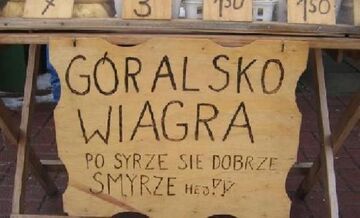 7 3 1,50 1,50
GÓRALSKO
WIAGRA
PO SYRZE SIE DOBRZE
SMYRZE HEJ!!